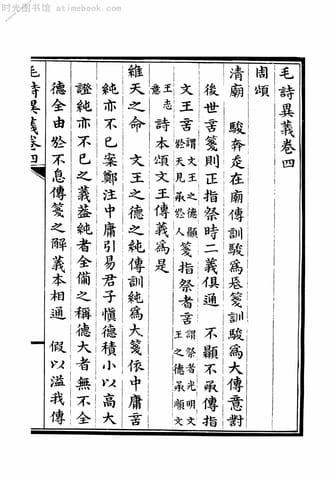 时光图书馆
atimebook.com
毛詩異義卷四
周頌
清廟 駿奔走在廟傳訓駿為長箋訓駿為大傳意對
後世言箋則正指祭時二義俱通 不顯不承傳指
文王言謂文王之德顯於天見承於人箋指祭者言謂祭者光明文王之德承順文
王志意詩本頌文王傳義為是
維天之命 文王之德之純傳訓純為大箋依中庸言
純亦不已案鄭注中庸引易君子慎德積小以高大
證純亦不已之義蓋純者全備之稱德大者無不全
德全由於不息傳箋之解義本相通 假以溢我傳
毛詩異義卷四